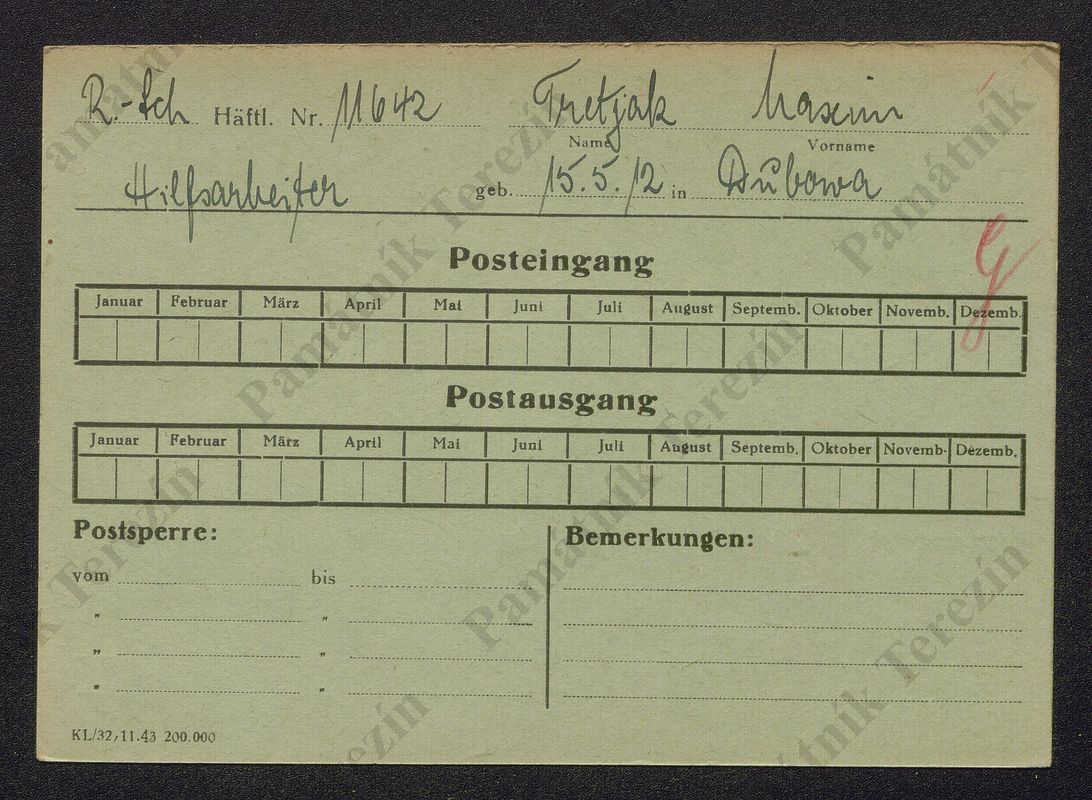 R.-Sch Häftl. Nr. 11642 Tretjak Maxim
Name Vorname
Hilfsarbeiter geb. 15.5.12 in Dubowa
Posteingang
Januar Februar März April Mai Juni Juli August Septemb. Oktober Novemb. Dezemb.
Postausgang
Januar Februar März April Mai Juni Juli August Septemb. Oktober Novemb. Dezemb.
Postsperre: Bemerkungen:
vom bis
" "
" "
" "
KL/32, 11.43 200.000
Památník Terezín